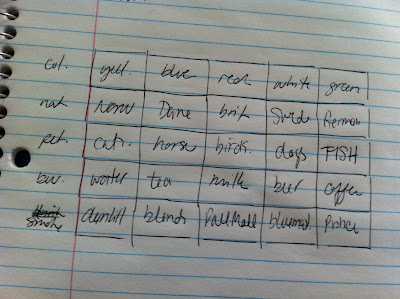 col. yell. blue red white green
nat norw Dane brit Swed German
pet cats horse birds. dogs FISH
bev. water tea milk beer coffee
smoke dunhill blends Pall Mall bluemad. Prince